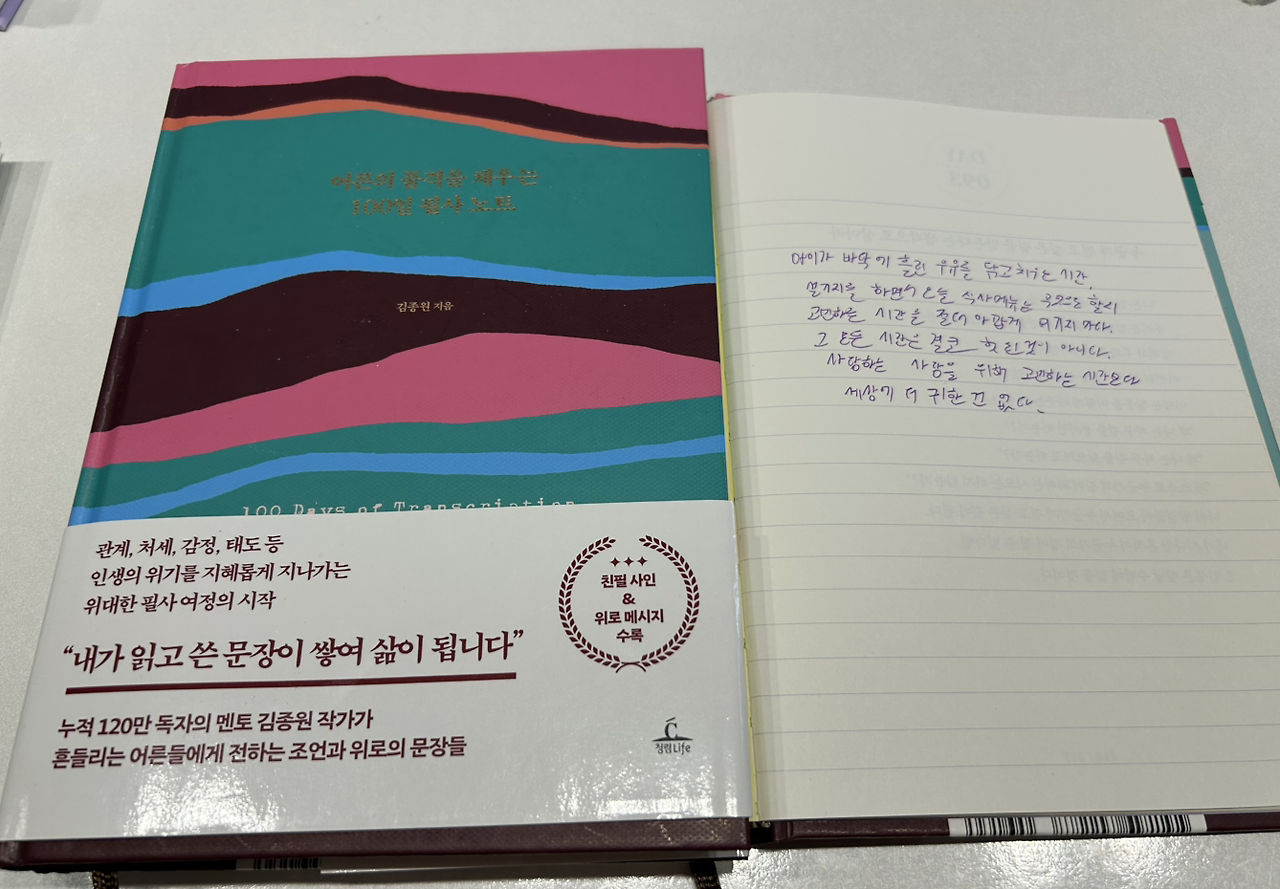 어른의 품격을 채우는
100일 필사 노트
김종원 지음
100 Days of Transcription
관계, 처세, 감정, 태도 등
인생의 위기를 지혜롭게 지나가는
위대한 필사 여정의 시작
“내가 읽고 쓴 문장이 쌓여 삶이 됩니다”
누적 120만 독자의 멘토 김종원 작가가
흔들리는 어른들에게 전하는 조언과 위로의 문장들
친필 사인
&
위로 메시지
수록
청림Life
아이가 바닥에 흘린 우유를 닦고 치우는 시간,
설거지를 하면서 오늘 식사메뉴는 무엇으로 할지
고민하는 시간을 절대 아깝게 여기지 마라.
그 모든 시간은 결코 헛된 것이 아니다.
사랑하는 사람을 위해 고민하는 시간보다
세상에 더 귀한 건 없다.